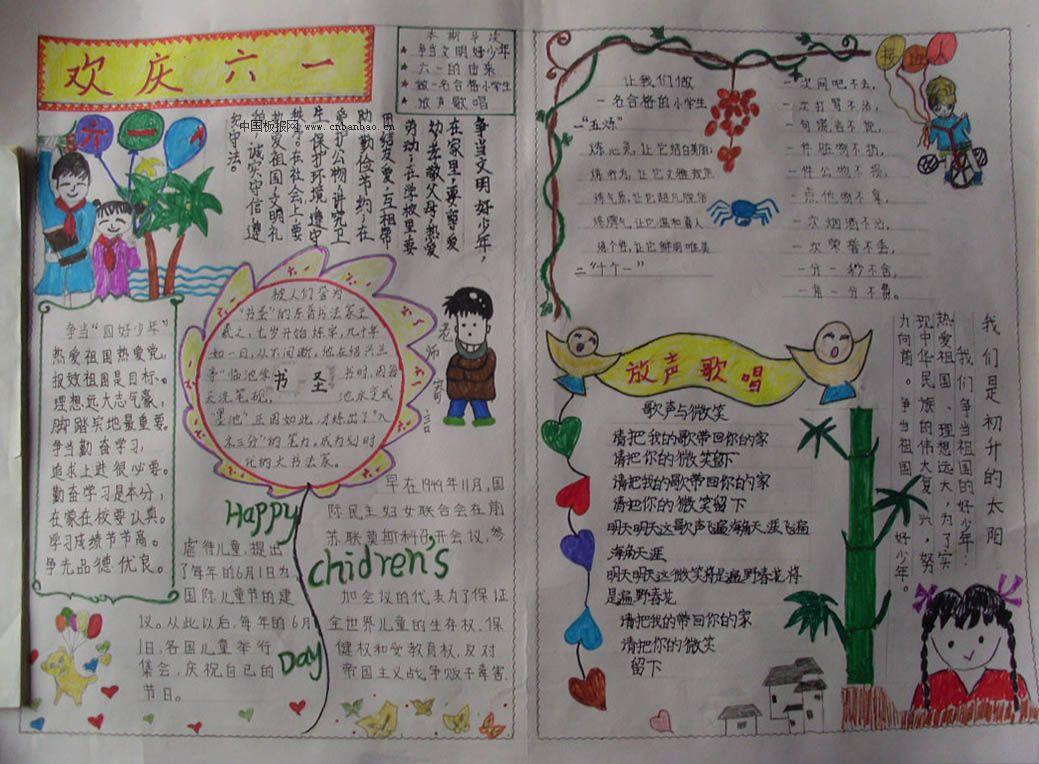 欢庆六一
本期导读
★争当文明好少年
★六一的由来
★做一名合格小学生
★放声歌唱
中国板报网 www.cnbanbao.cn
六一
争当文明好少年，
在家里：要尊爱
幼孝敬父母热爱
劳动；在学校里：要
团结友爱，互相帮
助勤俭节约；在
爱护公物讲究卫
生保护环境遵守
秩序。在社会上：要
热爱祖国文明礼
貌诚实守信遵
纪守法。
争当“四好少年”
热爱祖国热爱党，
报效祖国是目标。
理想远大志气豪，
脚踏实地最重要。
争当勤奋学习，
追求上进很必要。
勤奋学习是本分，
在家在校要认真。
学习成绩节节高。
争先品德优良。
六一
被人们誉为
“书圣”的东晋书法家王
羲之，七岁开始练字，几十年
如一日，从不间断。他在绍兴兰
亭“临池学书
书圣
池水变成
“墨池”正因如此，才练出了“入
木三分”的笔力，成为划时
代的大书法家。
老师寄言
Happy
Chidren's
Day
早在1949年11月，国
际民主妇女联合会在前
苏联莫斯科召开会议，参
加会议的代表为了保证
全世界儿童的生存权、保
健权和受教育权，反对
帝国主义战争贩子毒害
虐待儿童，提出
了每年的6月1日为
国际儿童节的建
议。从此以后，每年的6月
1日，各国儿童举行
集会，庆祝自己的
节日。
让我们做
一名合格的小学生
一“五炼”
炼心灵，让它结白美丽；
炼气质，让它超凡脱俗
炼脾气，让它温和喜人
炼个性，让它鲜明唯美
二“十个一”
一次网吧不去，
一次打骂不沾，
一句混言不说，
一件脏物不扔，
一件公物不损，
一点他物不拿，
一次烟酒不沾，
一次荣誉不丢，
一分一秒不舍，
一角一分不费。
接班人
放声歌唱
歌声与微笑
请把我的歌带回你的家
请把你的微笑留下
请把我的歌带回你的家
请把你的微笑留下
明天明天这歌声飞遍海角天涯飞遍
海角天涯
明天明天这微笑将是遍野春花将
是遍野春花
请把我的带回你的家
请把你的微笑
留下
我们是初升的太阳
我们争当祖国的好少年：
热爱祖国、理想远大，为了实
现中华民族的伟大复兴，努
力向前。争当祖国好少年。